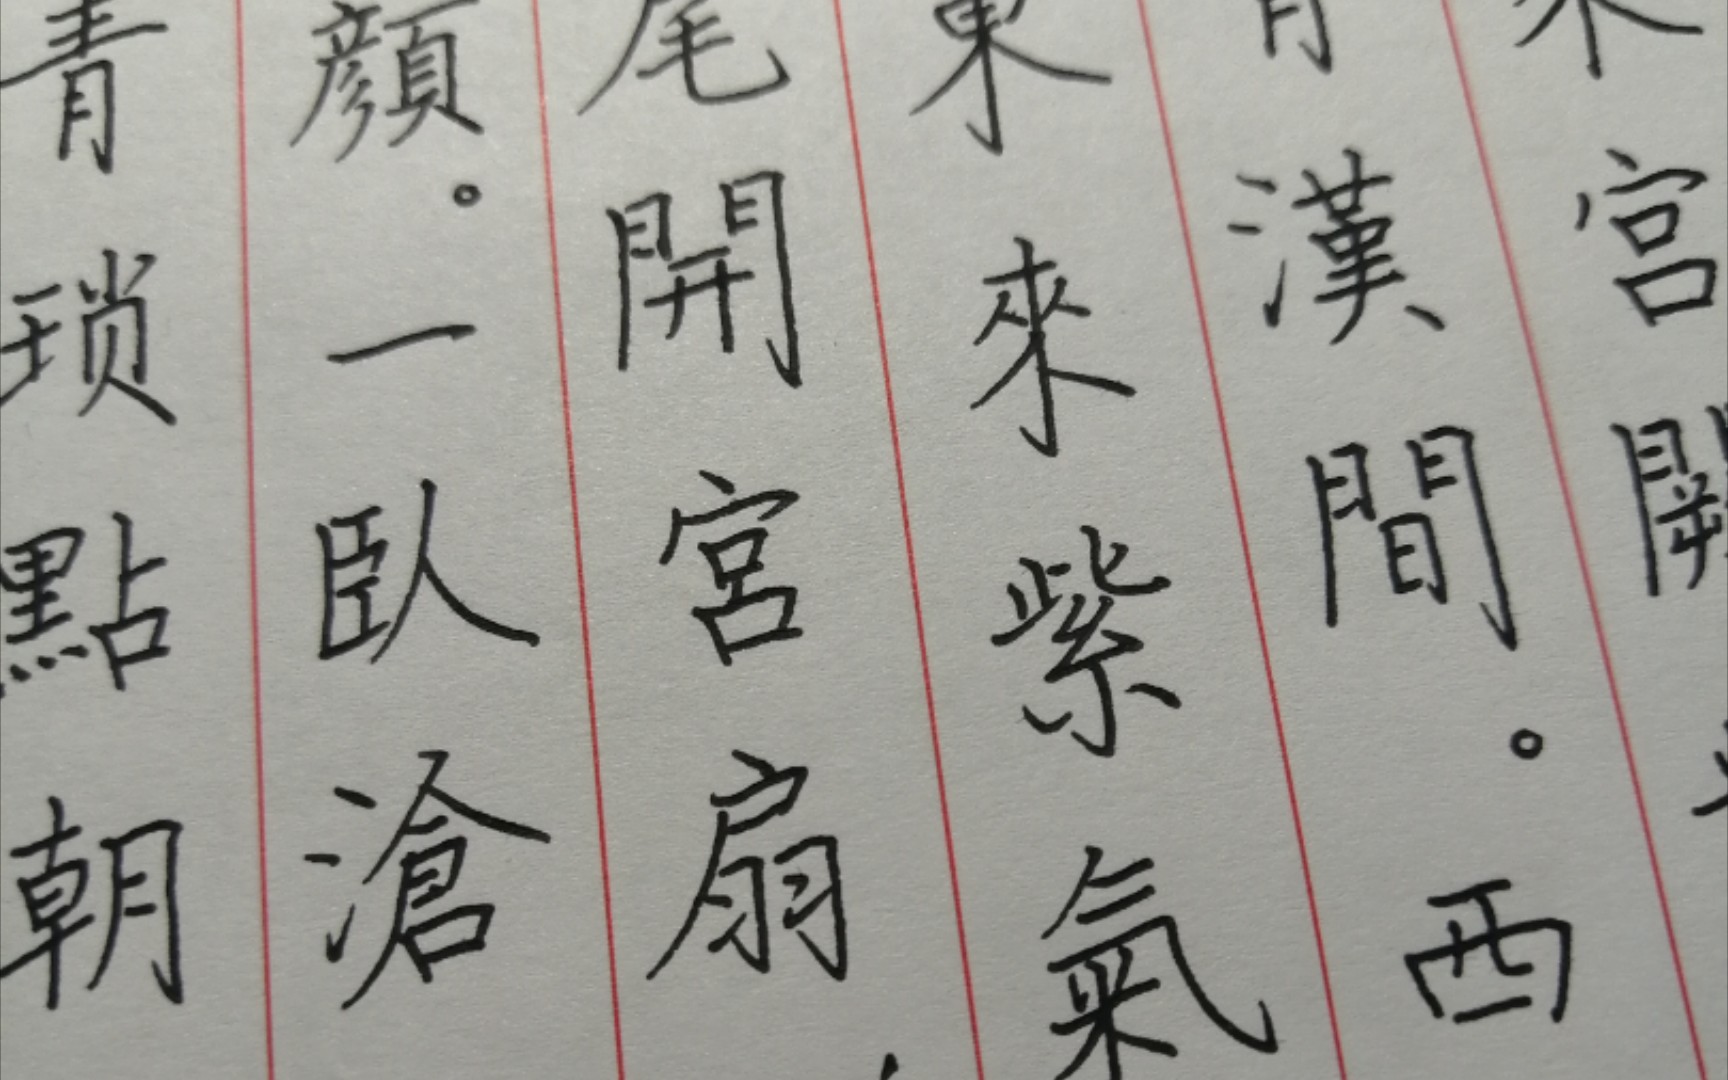 宮闕
漢間。西
東來紫氣
尾開宮扇
顏。一臥滄
青瑣點朝